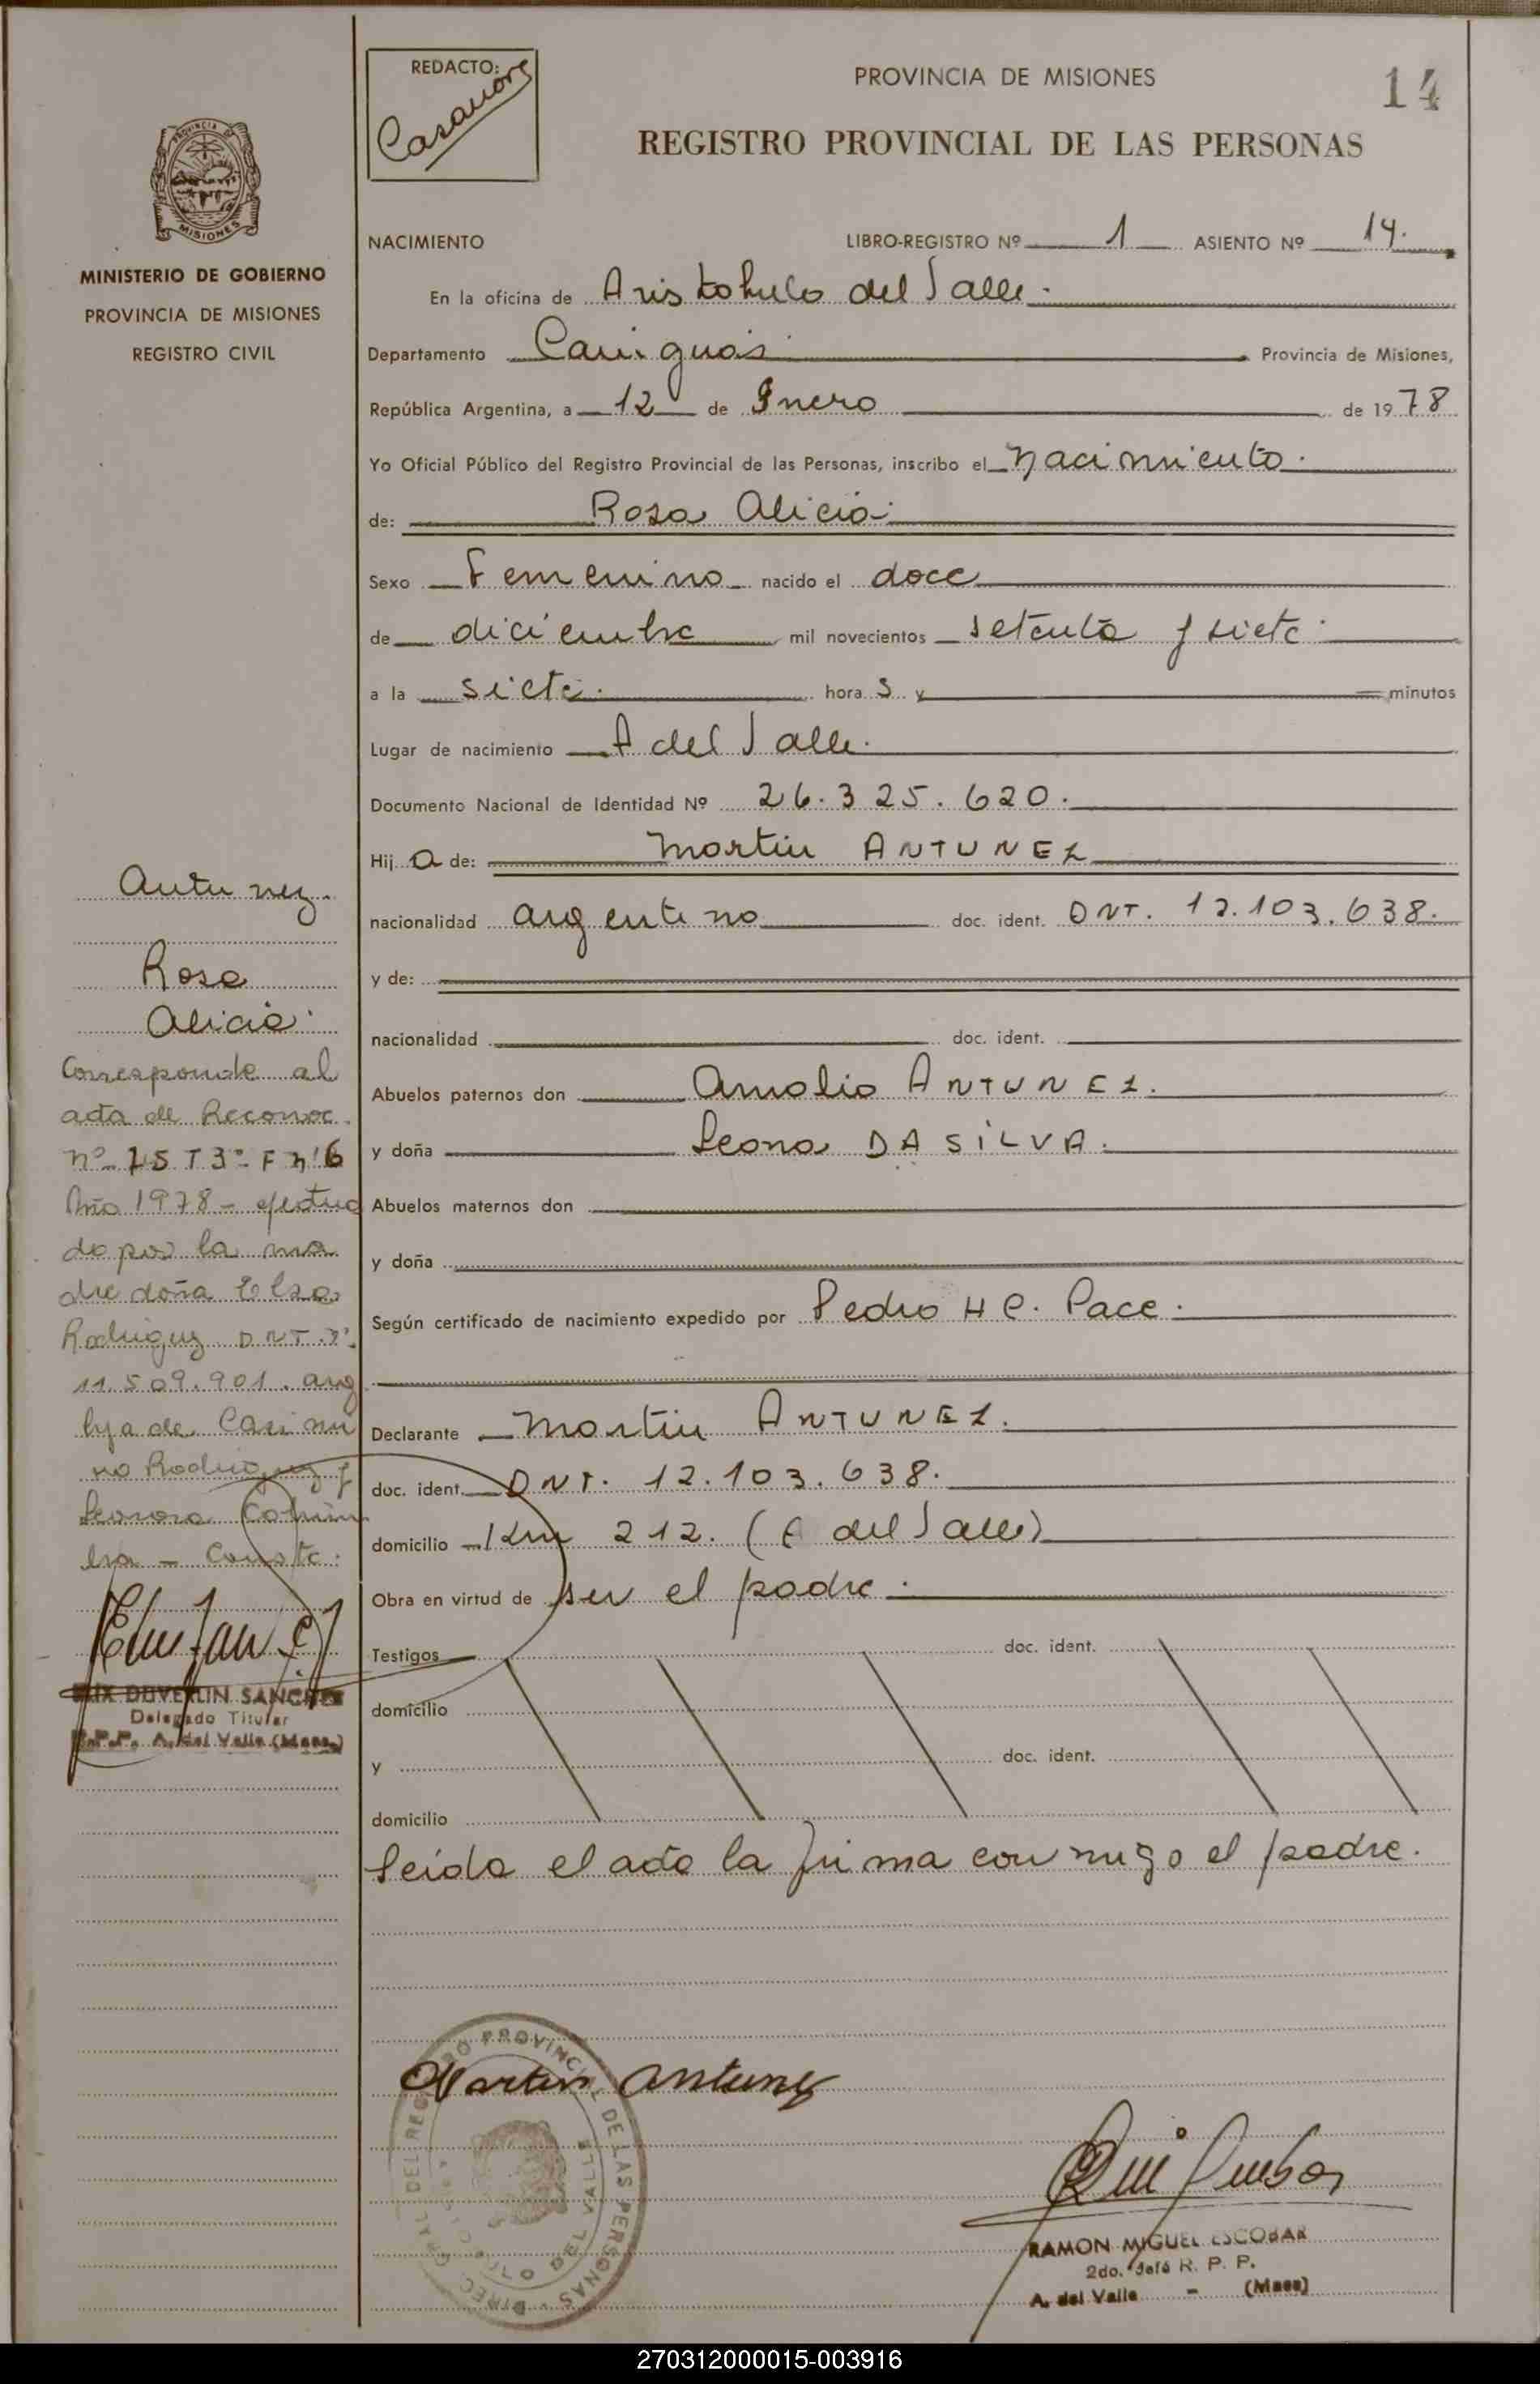 REDACTO:
Casanova
PROVINCIA DE MISIONES
14
REGISTRO PROVINCIAL DE LAS PERSONAS
PROVINCIA DE
MISIONES
MINISTERIO DE GOBIERNO
PROVINCIA DE MISIONES
REGISTRO CIVIL
NACIMIENTO
LIBRO-REGISTRO Nº 1 ASIENTO Nº 14.
En la oficina de Aristobulo del Valle.
Departamento Cainguas Provincia de Misiones,
República Argentina, a 12 de Enero de 1978
Yo Oficial Público del Registro Provincial de las Personas, inscribo el Nacimiento.
de: Rosa Alicia.
Sexo Femenino nacido el doce
de diciembre mil novecientos setenta y siete.
a la siete. hora s y minutos
Lugar de nacimiento A del Valle.
Documento Nacional de Identidad Nº 26.325.620.
Hij a de: Martin ANTUNEZ
nacionalidad argentino doc. ident. DNI. 12.103.638.
y de:
nacionalidad doc. ident.
Abuelos paternos don Amalio ANTUNEZ.
y doña Leona DA SILVA.
Abuelos maternos don
y doña
Según certificado de nacimiento expedido por Pedro H C. Pace.
Declarante Martin ANTUNEZ.
doc. ident. DNI. 12.103.638.
domicilio Km 212. (A del Valle)
Obra en virtud de ser el padre.
Testigos doc. ident.
domicilio
y doc. ident.
domicilio
Leida el acta la firma conmigo el padre.
Antunez.
Rosa
Alicia.
Corresponde al
acta de Reconoc.
nº 15 T 3º F nº 16
Año 1978 - efectua
do por la ma
dre doña Elsa
Rodriguez DNI.nº
11.509.901. arg
hija de Casimi
ro Rodriguez y
Leonora
- Conste.
FELIX DUVERLIN SANCHEZ
Delegado Titular
R.P.P. A. del Valle (Mnes.)
Martin Antunez
DIREC. GRAL. DEL REGISTRO PROVINCIAL DE LAS PERSONAS
ARISTOBULO DEL VALLE
RAMON MIGUEL ESCOBAR
2do. Jefe R. P. P.
A. del Valle - (Mnes)
270312000015-003916